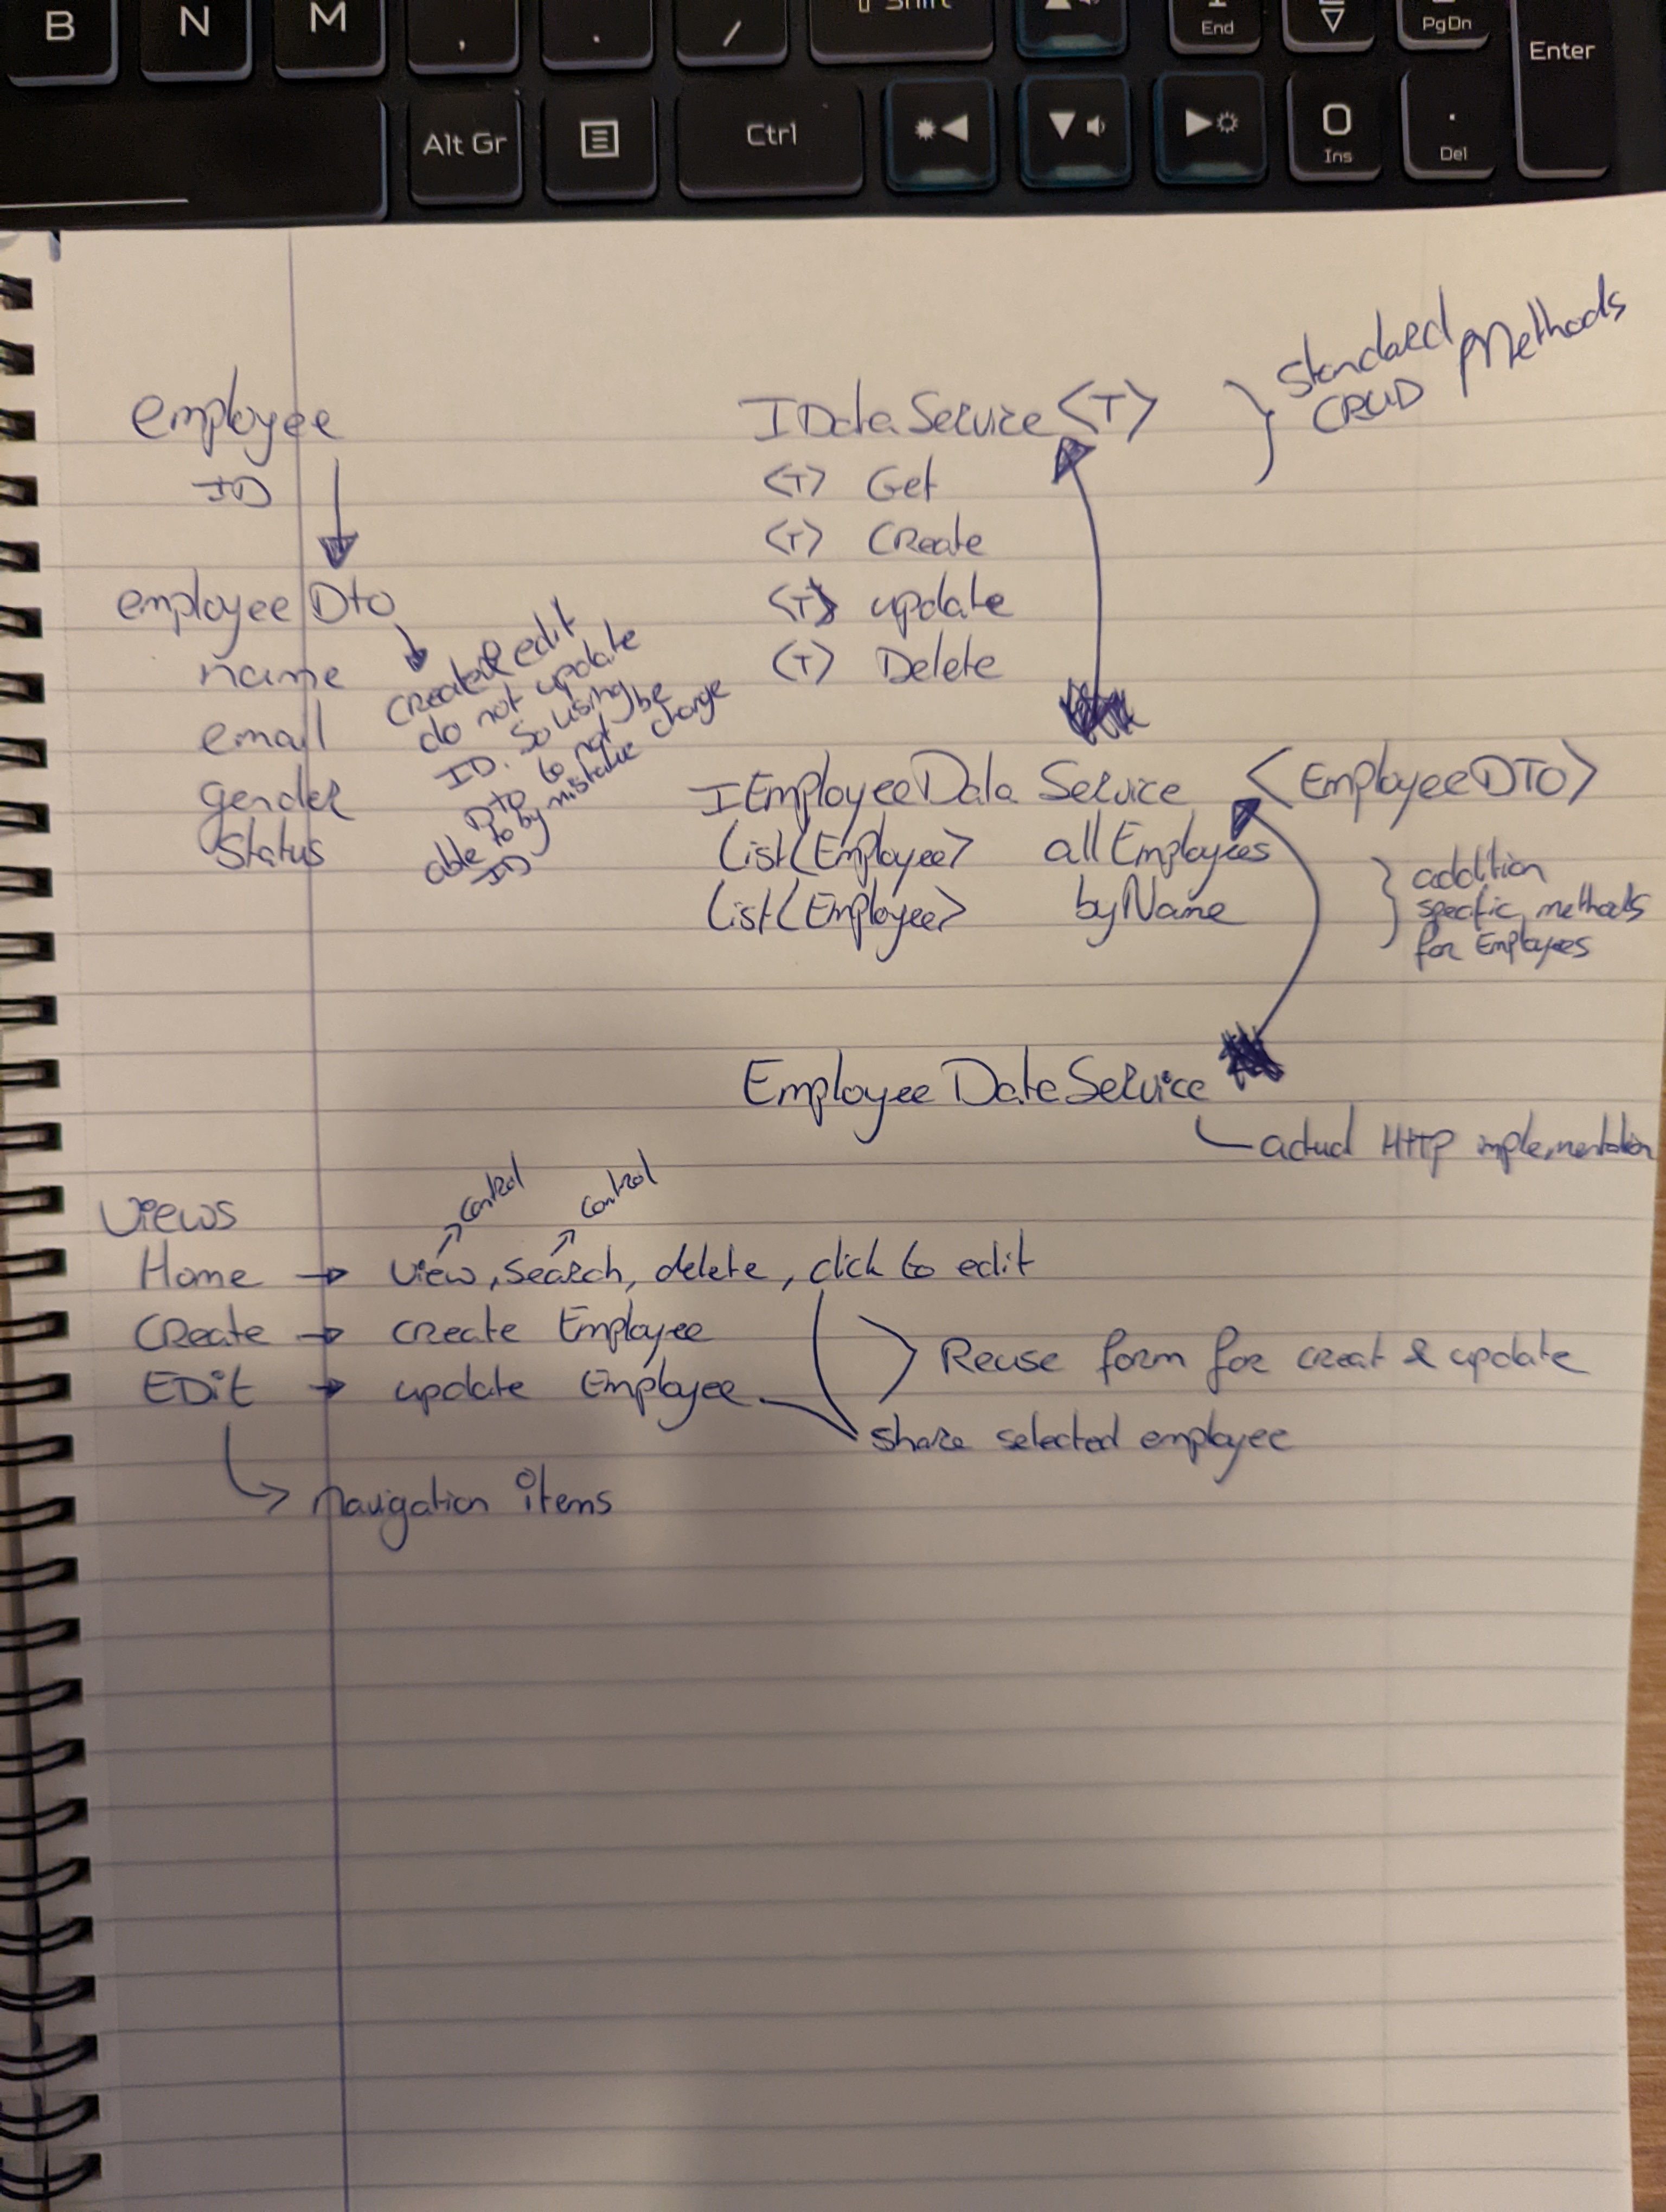 B N M , . / Shift End PgDn Enter
Alt Gr Ctrl 0 Ins . Del
employee
ID
employee Dto
name
email
gender
status
create & edit
do not update
ID. So using
Dto to not be
able to by mistake change
ID
IDataService <T>
<T> Get
<T> Create
<T> update
<T> Delete
Standard Methods
CRUD
IEmployeeData Service <EmployeeDTO>
List<Employee> allEmployees
List<Employee> byName
addition
specific methods
for Employees
Employee DataService
actual HTTP implementation
Views
control control
Home → View, Search, delete, click to edit
Create → create Employee
EDit → update Employee
Reuse form for creat & update
share selected employee
navigation items